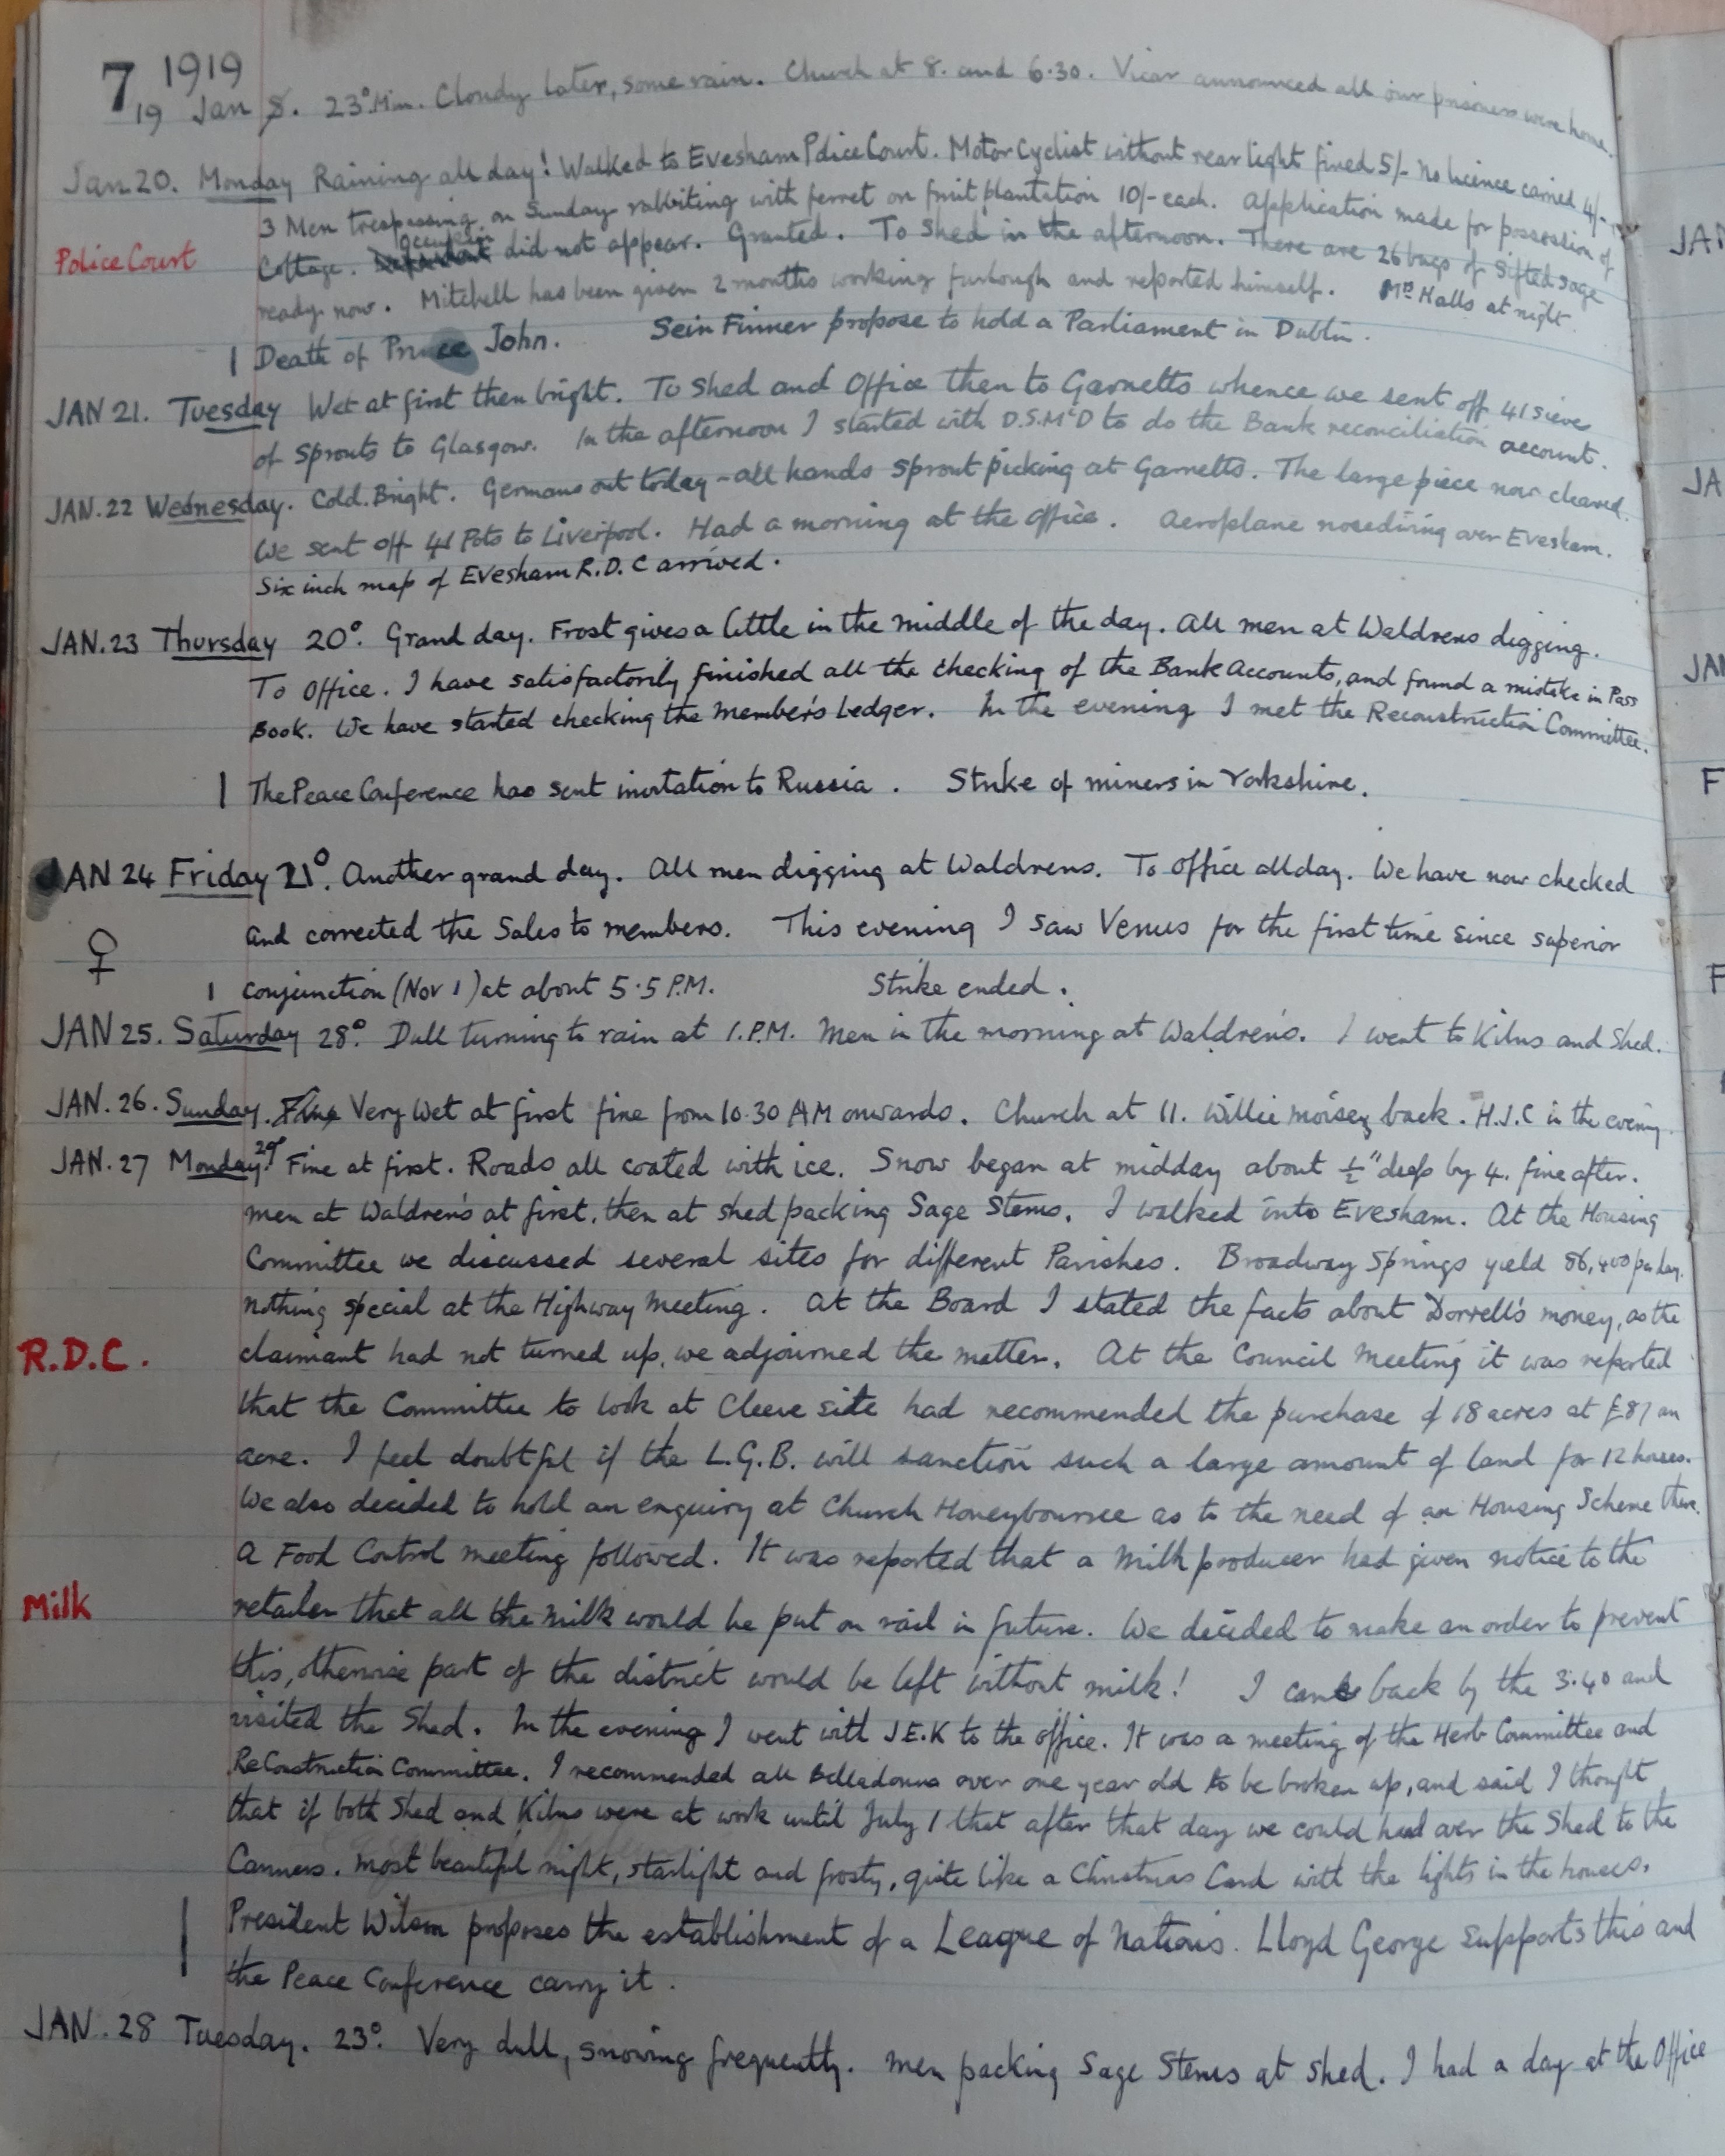 7 1919
19 Jan S. 23° Min. Cloudy later, some rain. Church at 8. and 6.30. Vicar announced all our prisoners were home.
Jan 20. Monday Raining all day! Walked to Evesham Police Court. Motor Cyclist without rear light fined 5/- No licence carried 4/-
3 Men trespassing on Sunday rabbiting with ferret on fruit plantation 10/- each. Application made for possession of
Police Court Cottage. occupier did not appear. Granted. To Shed in the afternoon. There are 26 bags of Sifted Sage
ready now. Mitchell has been given 2 months working furlough and reported himself. Mrs Halls at night.
| Death of Prince John. Sein Finner propose to hold a Parliament in Dublin.
JAN 21. Tuesday Wet at first then bright. To Shed and Office then to Garnetts whence we sent off 41 sieves
of Sprouts to Glasgow. In the afternoon I started with D.S.McD to do the Bank reconciliation account.
JAN. 22 Wednesday. Cold. Bright. Germans out today - all hands sprout picking at Garnetts. The large piece now cleared.
We sent off 41 Pots to Liverpool. Had a morning at the office. Aeroplane nosediving over Evesham.
Six inch map of Evesham R.D.C arrived.
JAN. 23 Thursday 20°. Grand day. Frost gives a little in the middle of the day. All men at Waldrens digging.
To Office. I have satisfactorily finished all the checking of the Bank Accounts, and found a mistake in Pass
Book. We have started checking the Member's Ledger. In the evening I met the Reconstruction Committee.
| The Peace Conference has sent invitation to Russia. Strike of miners in Yorkshire.
JAN 24 Friday 21°. Another grand day. All men digging at Waldrens. To Office all day. We have now checked
and corrected the Sales to members. This evening I saw Venus for the first time since superior
♀ | conjunction (Nov 1) at about 5.5 P.M. Strike ended.
JAN 25. Saturday 28°. Dull turning to rain at 1.P.M. Men in the morning at Waldren's. I went to Kilns and Shed.
JAN. 26. Sunday. Fine Very Wet at first fine from 10.30 AM onwards. Church at 11. Willie Moisey back. H.J.C in the evening.
JAN. 27 Monday 29° Fine at first. Roads all coated with ice. Snow began at midday about ½" deep by 4. fine after.
Men at Waldren's at first, then at shed packing Sage Stems. I walked into Evesham. At the Housing
Committee we discussed several sites for different Parishes. Broadway Springs yield 86,400 per day.
Nothing special at the Highway Meeting. At the Board I stated the facts about Dorrell's money, as the
R.D.C. claimant had not turned up, we adjourned the matter. At the Council Meeting it was reported
that the Committee to look at Cleeve site had recommended the purchase of 18 acres at £87 an
acre. I feel doubtful if the L.G.B. will sanction such a large amount of land for 12 houses.
We also decided to hold an enquiry at Church Honeybourne as to the need of an Housing Scheme there.
A Food Control meeting followed. It was reported that a Milk producer had given notice to the
Milk retailer that all the milk would be put on rail in future. We decided to make an order to prevent
this, otherwise part of the district would be left without milk! I came back by the 3.40 and
visited the Shed. In the evening I went with J.E.K to the office. It was a meeting of the Herb Committee and
ReConstruction Committee. I recommended all Belladonna over one year old to be broken up, and said I thought
that if both Shed and Kilns were at work until July 1 that after that day we could hand over the Shed to the
Canners. Most beautiful night, starlight and frosty, quite like a Christmas Card with the lights in the houses.
| President Wilson proposes the establishment of a League of Nations. Lloyd George supports this and
the Peace Conference carry it.
JAN. 28 Tuesday. 23°. Very dull, snowing frequently. Men packing Sage Stems at shed. I had a day at the Office